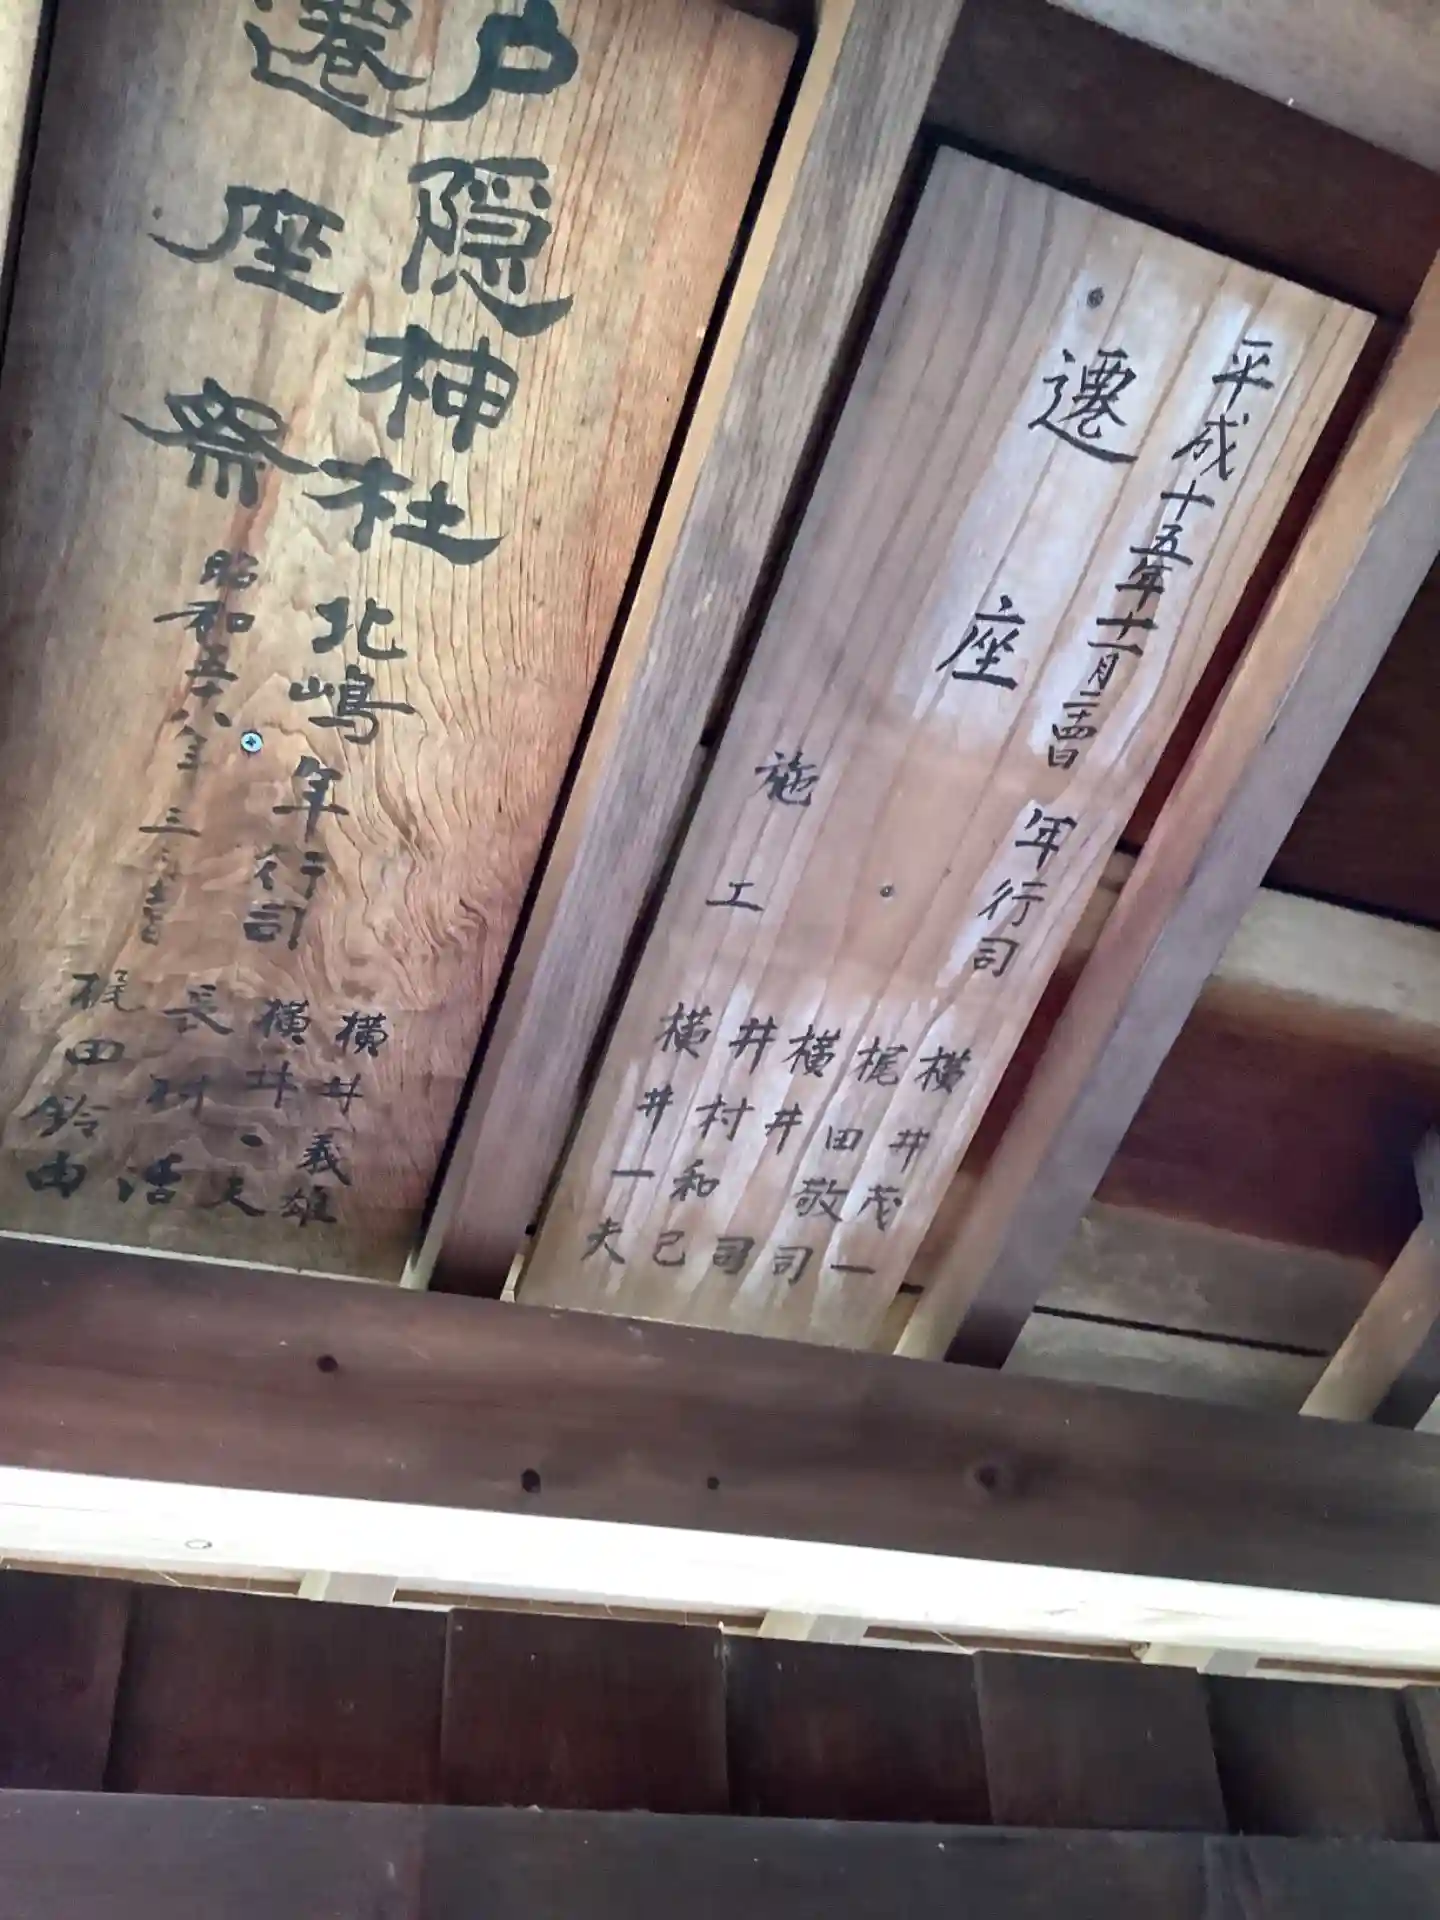 戸隠神社
北嶋年行司
横井義雄
横井 夫
長村 浩
梶田鈴由
遷座祭
昭和五十八年三月
平成十五年十一月二十四日
年行司
横井茂一
梶田敬司
横井 司
井村和己
横井一夫
遷座
施工